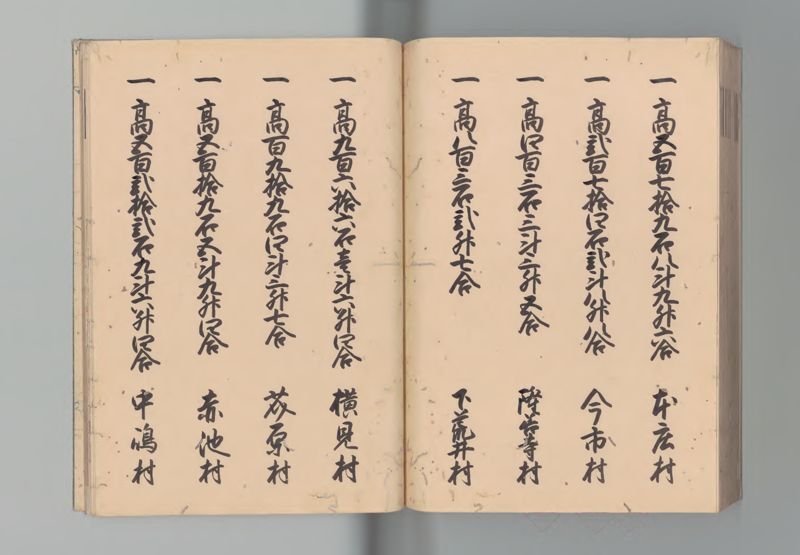 一 高五百七拾九石八斗九升六合 本庄村
一 高弐百七拾四石弐斗八升八合 今市村
一 高四百三石三斗三升五合 隆岩寺村
一 高八百三石弐升七合 下荒井村
一 高九百六拾六石壱斗六升四合 横見村
一 高百九拾九石四斗三升七合 茂原村
一 高五百拾九石五斗九升四合 赤池村
一 高五百弐拾弐石九斗六升四合 中嶋村